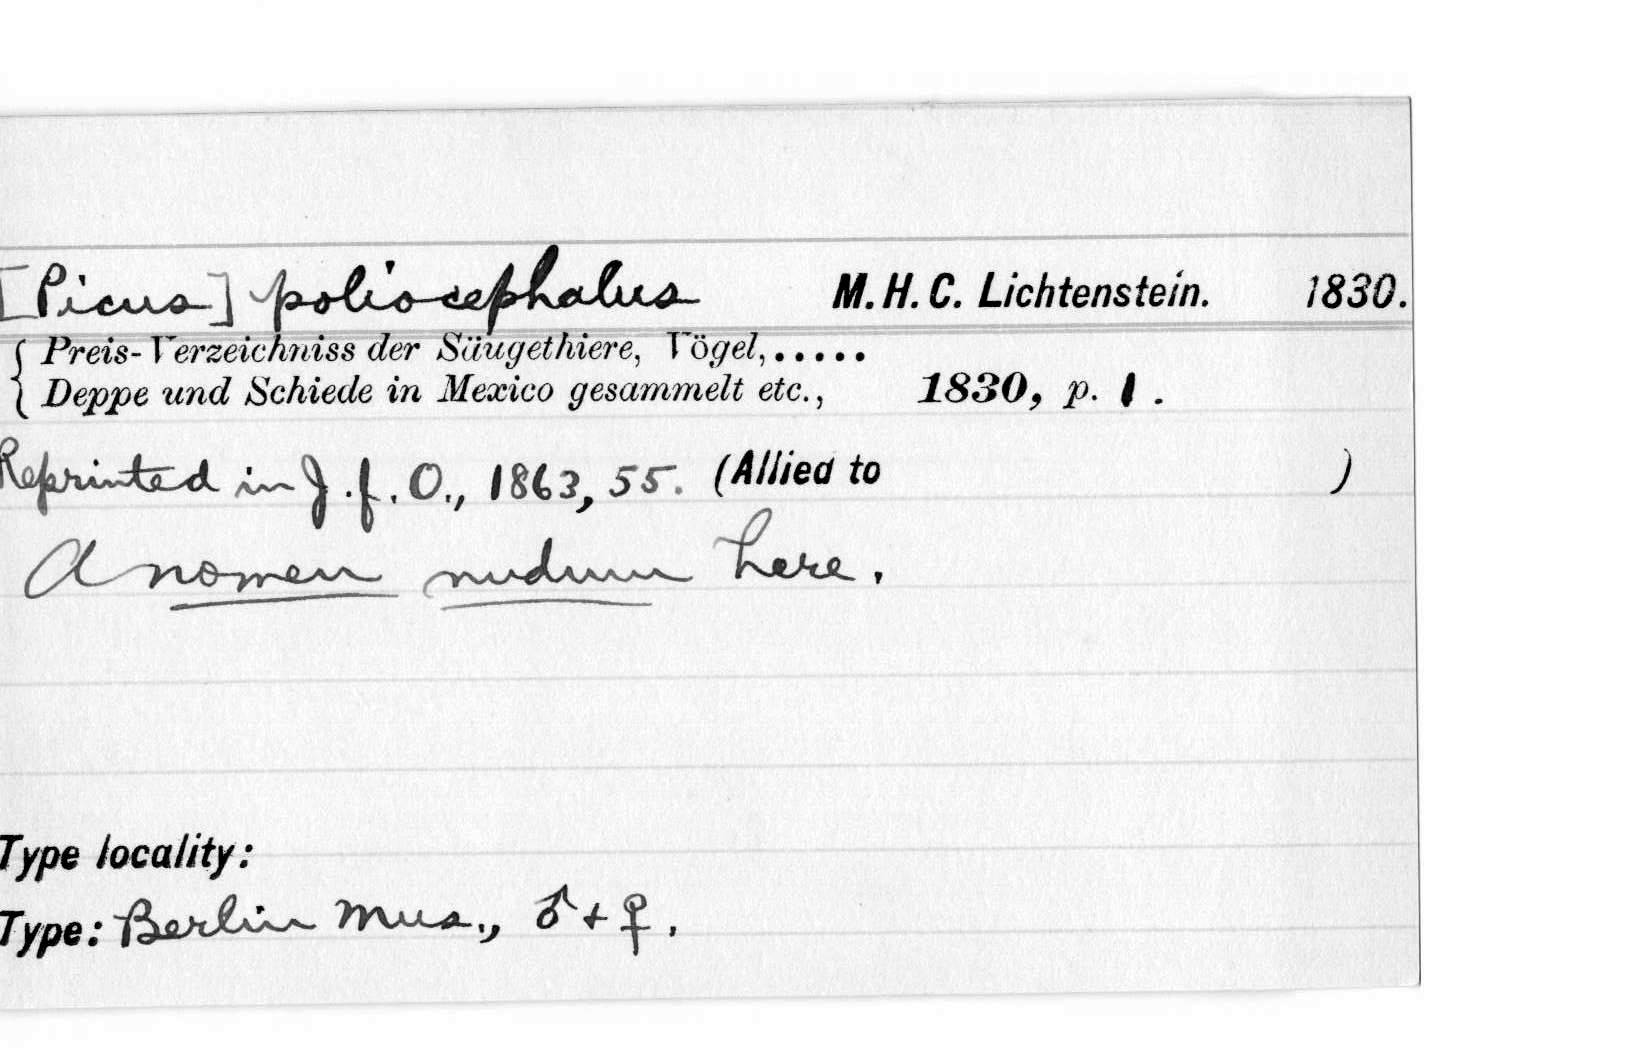 [Picus] poliocephalus M. H. C. Lichtenstein. 1830.
{ Preis-Verzeichniss der Säugethiere, Vögel,.....
{ Deppe und Schiede in Mexico gesammelt etc., 1830, p. 1.
Reprinted in J. f. O., 1863, 55. (Allied to )
A nomen nudum here.
Type locality:
Type: Berlin Mus., ♂ + ♀.